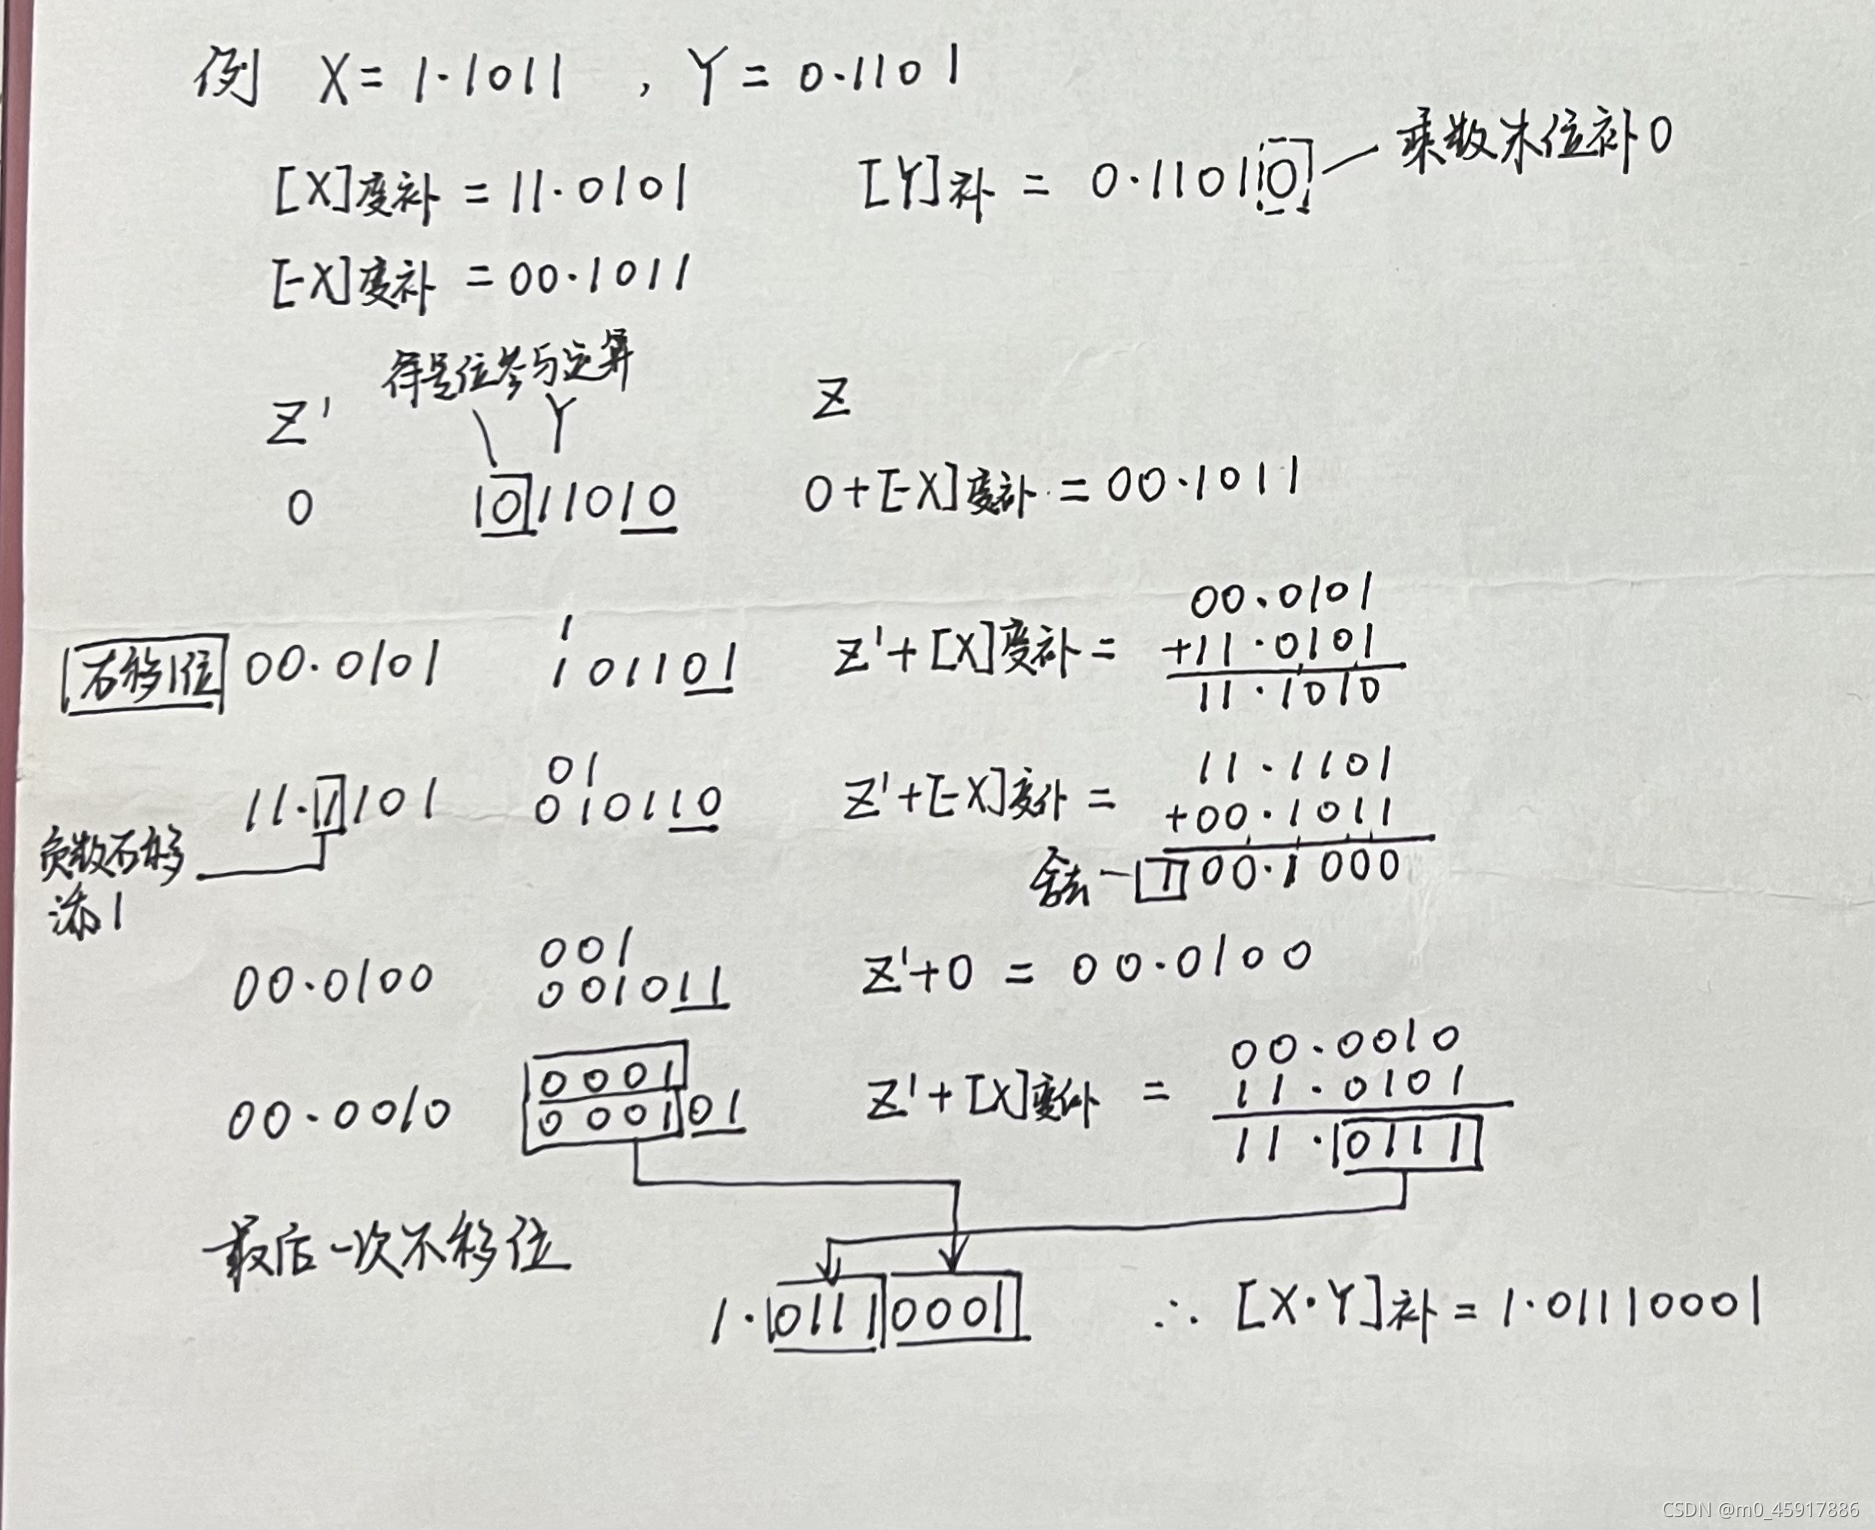 例 X = 1.1011 , Y = 0.1101
[X]变补 = 11.0101 [Y]补 = 0.11010 乘数末位补0
[-X]变补 = 00.1011
符号位参与运算
Z' Y Z
0 1011010 0+[-X]变补 = 00.1011
00.0101
右移1位 00.0101 1 Z'+[X]变补 = +11.0101
101101 11.1010
11.1101
11.1101 01 Z'+[-X]变补 = +00.1011
010110
负数右移 舍去 1 00.1000
添1
00.0100 001 Z'+0 = 00.0100
001011
00.0010
00.0010 0001 Z'+[X]变补 = 11.0101
000101 11.0111
最后一次不移位
1.01110001 ∴ [X·Y]补 = 1.01110001
CSDN @m0_45917886